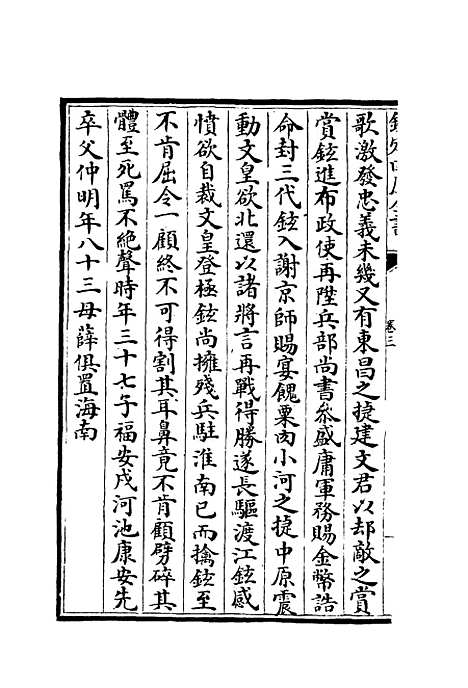 歌激發忠義未幾又有東昌之捷建文君以却敵之賞
賞鉉進布政使再陞兵部尚書叅盛庸軍務賜金幣誥
命封三代鉉入謝京師賜宴餽粟肉小河之捷中原震
動文皇欲北還以諸將言再戰得勝遂長驅渡江鉉感
憤欲自裁文皇登極鉉尚擁殘兵駐淮南已而擒鉉至
不肯屈令一顧終不可得割其耳鼻竟不肯顧劈碎其
體至死罵不絶聲時年三十七子福安戍河池康安先
卒父仲明年八十三母薛俱置海南
卷三